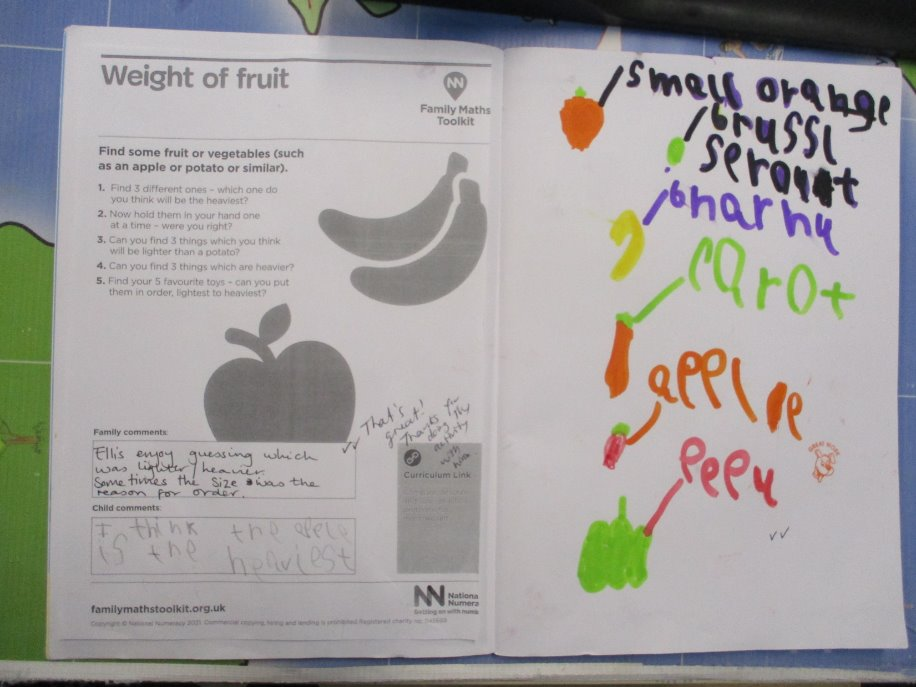 Weight of fruit
Family Maths
Toolkit
Find some fruit or vegetables (such
as an apple or potato or similar).
1. Find 3 different ones – which one do
you think will be the heaviest?
2. Now hold them in your hand one
at a time – were you right?
3. Can you find 3 things which you think
will be lighter than a potato?
4. Can you find 3 things which are heavier?
5. Find your 5 favourite toys – can you put
them in order, lightest to heaviest?
Family comments:
Ellis enjoy guessing which
was lighter/heavier.
Sometimes the size was the
reason for order.
That's
great!
Thanks for
doing this
activity
with him.
Curriculum Link
Child comments:
I think the apple
is the heaviest
familymathstoolkit.org.uk
Nationa
Numera
Getting on with numb
Copyright © National Numeracy 2021. Commercial copying, hiring and lending is prohibited. Registered charity no.
small orange
brussl
serout
bnarnu
carot
apple
pepu
GREAT WORK